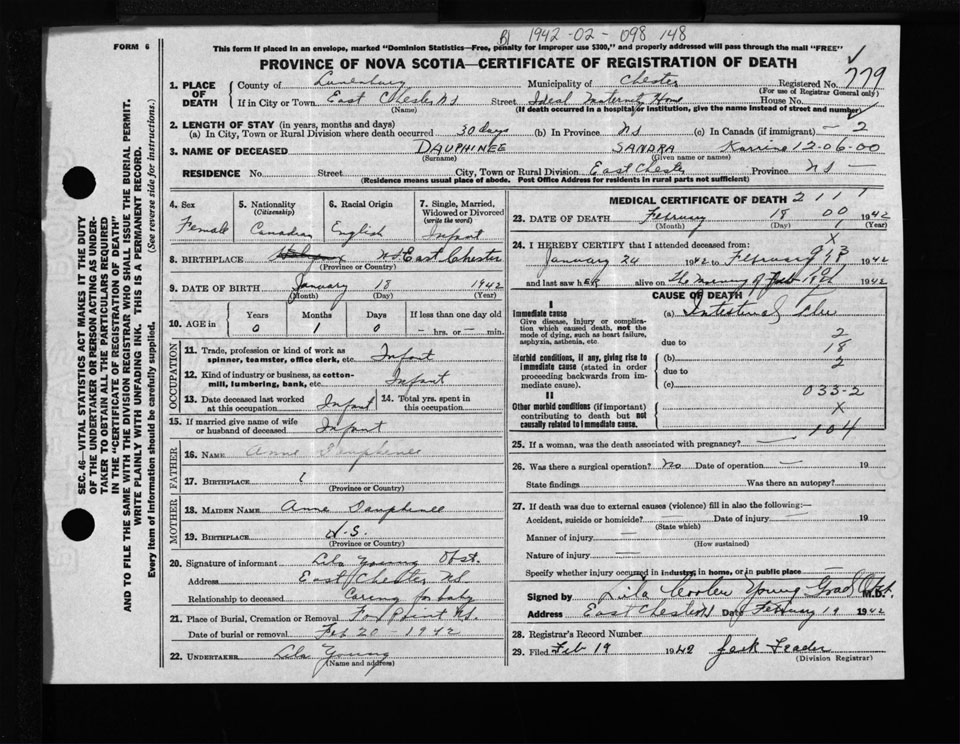 BJ 1942-02-098 148
FORM 6
This form if placed in an envelope, marked "Dominion Statistics—Free, penalty for improper use $300," and properly addressed will pass through the mail "FREE"
PROVINCE OF NOVA SCOTIA—CERTIFICATE OF REGISTRATION OF DEATH
1. PLACE OF DEATH
County of Lunenburg Municipality of Chester Registered No. 779
(For use of Registrar General only)
If in City or Town East Chester N.S. Street Ideal Maternity Home House No.
(Name) (If death occurred in a hospital or institution, give the name instead of street and number)
2. LENGTH OF STAY (in years, months and days)
(a) In City, Town or Rural Division where death occurred 30 days (b) In Province NS (c) In Canada (if immigrant) — 2
3. NAME OF DECEASED DAUPHINEE SANDRA 12-06-00
(Surname) (Given name or names)
RESIDENCE No. Street City, Town or Rural Division East Chester Province NS
(Residence means usual place of abode. Post Office Address for residents in rural parts not sufficient)
4. Sex Female
5. Nationality (Citizenship) Canadian
6. Racial Origin English
7. Single, Married, Widowed or Divorced (write the word) Infant
8. BIRTHPLACE NS East Chester
(Province or Country)
9. DATE OF BIRTH January 18 1942
(Month) (Day) (Year)
10. AGE in Years Months Days If less than one day old
0 1 0 — hrs. or — min.
OCCUPATION
11. Trade, profession or kind of work as spinner, teamster, office clerk, etc. Infant
12. Kind of industry or business, as cotton-mill, lumbering, bank, etc. Infant
13. Date deceased last worked at this occupation Infant 14. Total yrs. spent in this occupation
15. If married give name of wife or husband of deceased Infant
FATHER
16. NAME Anne Dauphinee
17. BIRTHPLACE
(Province or Country)
MOTHER
18. MAIDEN NAME Anne Dauphinee
19. BIRTHPLACE N.S.
(Province or Country)
20. Signature of informant Lila Young Obst.
Address East Chester NS.
Relationship to deceased Caring for baby
21. Place of Burial, Cremation or Removal Fox Point NS.
Date of burial or removal Feb 20 - 1942
22. UNDERTAKER Lila Young
(Name and address)
MEDICAL CERTIFICATE OF DEATH 211
23. DATE OF DEATH February 18 00 1942
(Month) (Day) (Year)
24. I HEREBY CERTIFY that I attended deceased from:
X
January 24 1942 to February 1942
and last saw her alive on The morning of Feb 18th 1942
CAUSE OF DEATH
I
Immediate cause
Give disease, injury or complication which caused death, not the mode of dying, such as heart failure, asphyxia, asthenia, etc.
(a) Intestinal Flu
due to 2
Morbid conditions, if any, giving rise to immediate cause (stated in order proceeding backwards from immediate cause).
(b) 18
due to 2
(c)
033-2
II
Other morbid conditions (if important) contributing to death but not causally related to immediate cause.
X
104
25. If a woman, was the death associated with pregnancy? —
26. Was there a surgical operation? No Date of operation — 19
State findings Was there an autopsy?
27. If death was due to external causes (violence) fill in also the following:—
Accident, suicide or homicide? — Date of injury — 19
(State which)
Manner of injury —
(How sustained)
Nature of injury —
Specify whether injury occurred in industry, in home, or in public place
Signed by Lila Coolen Young Grad Obst. M.D.
Address East Chester NS Date February 19 1942
28. Registrar's Record Number
29. Filed Feb 19 1942 Jack
(Division Registrar)
SEC. 46—VITAL STATISTICS ACT MAKES IT THE DUTY OF THE UNDERTAKER OR PERSON ACTING AS UNDERTAKER TO OBTAIN ALL THE PARTICULARS REQUIRED IN THE "CERTIFICATE OF REGISTRATION OF DEATH" AND TO FILE THE SAME WITH THE DIVISION REGISTRAR WHO SHALL ISSUE THE BURIAL PERMIT.
WRITE PLAINLY WITH UNFADING INK. THIS IS A PERMANENT RECORD.
Every item of Information should be carefully supplied. (See reverse side for instructions.)